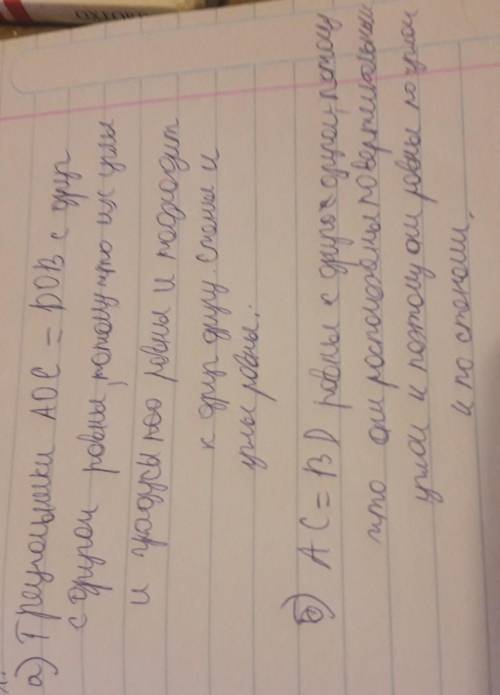 OXFOR
а) Треугольники AOC = DOB с друг
с другом ровны, потому что их углы
и градусы тоо ровны и подходит
к друг другу. Стены и
углы ровны.
б) AC = BD ровны с друг с другом, потому
что они росположены по вертикальным
углам и поэтому они ровны по углам
и по стенами.